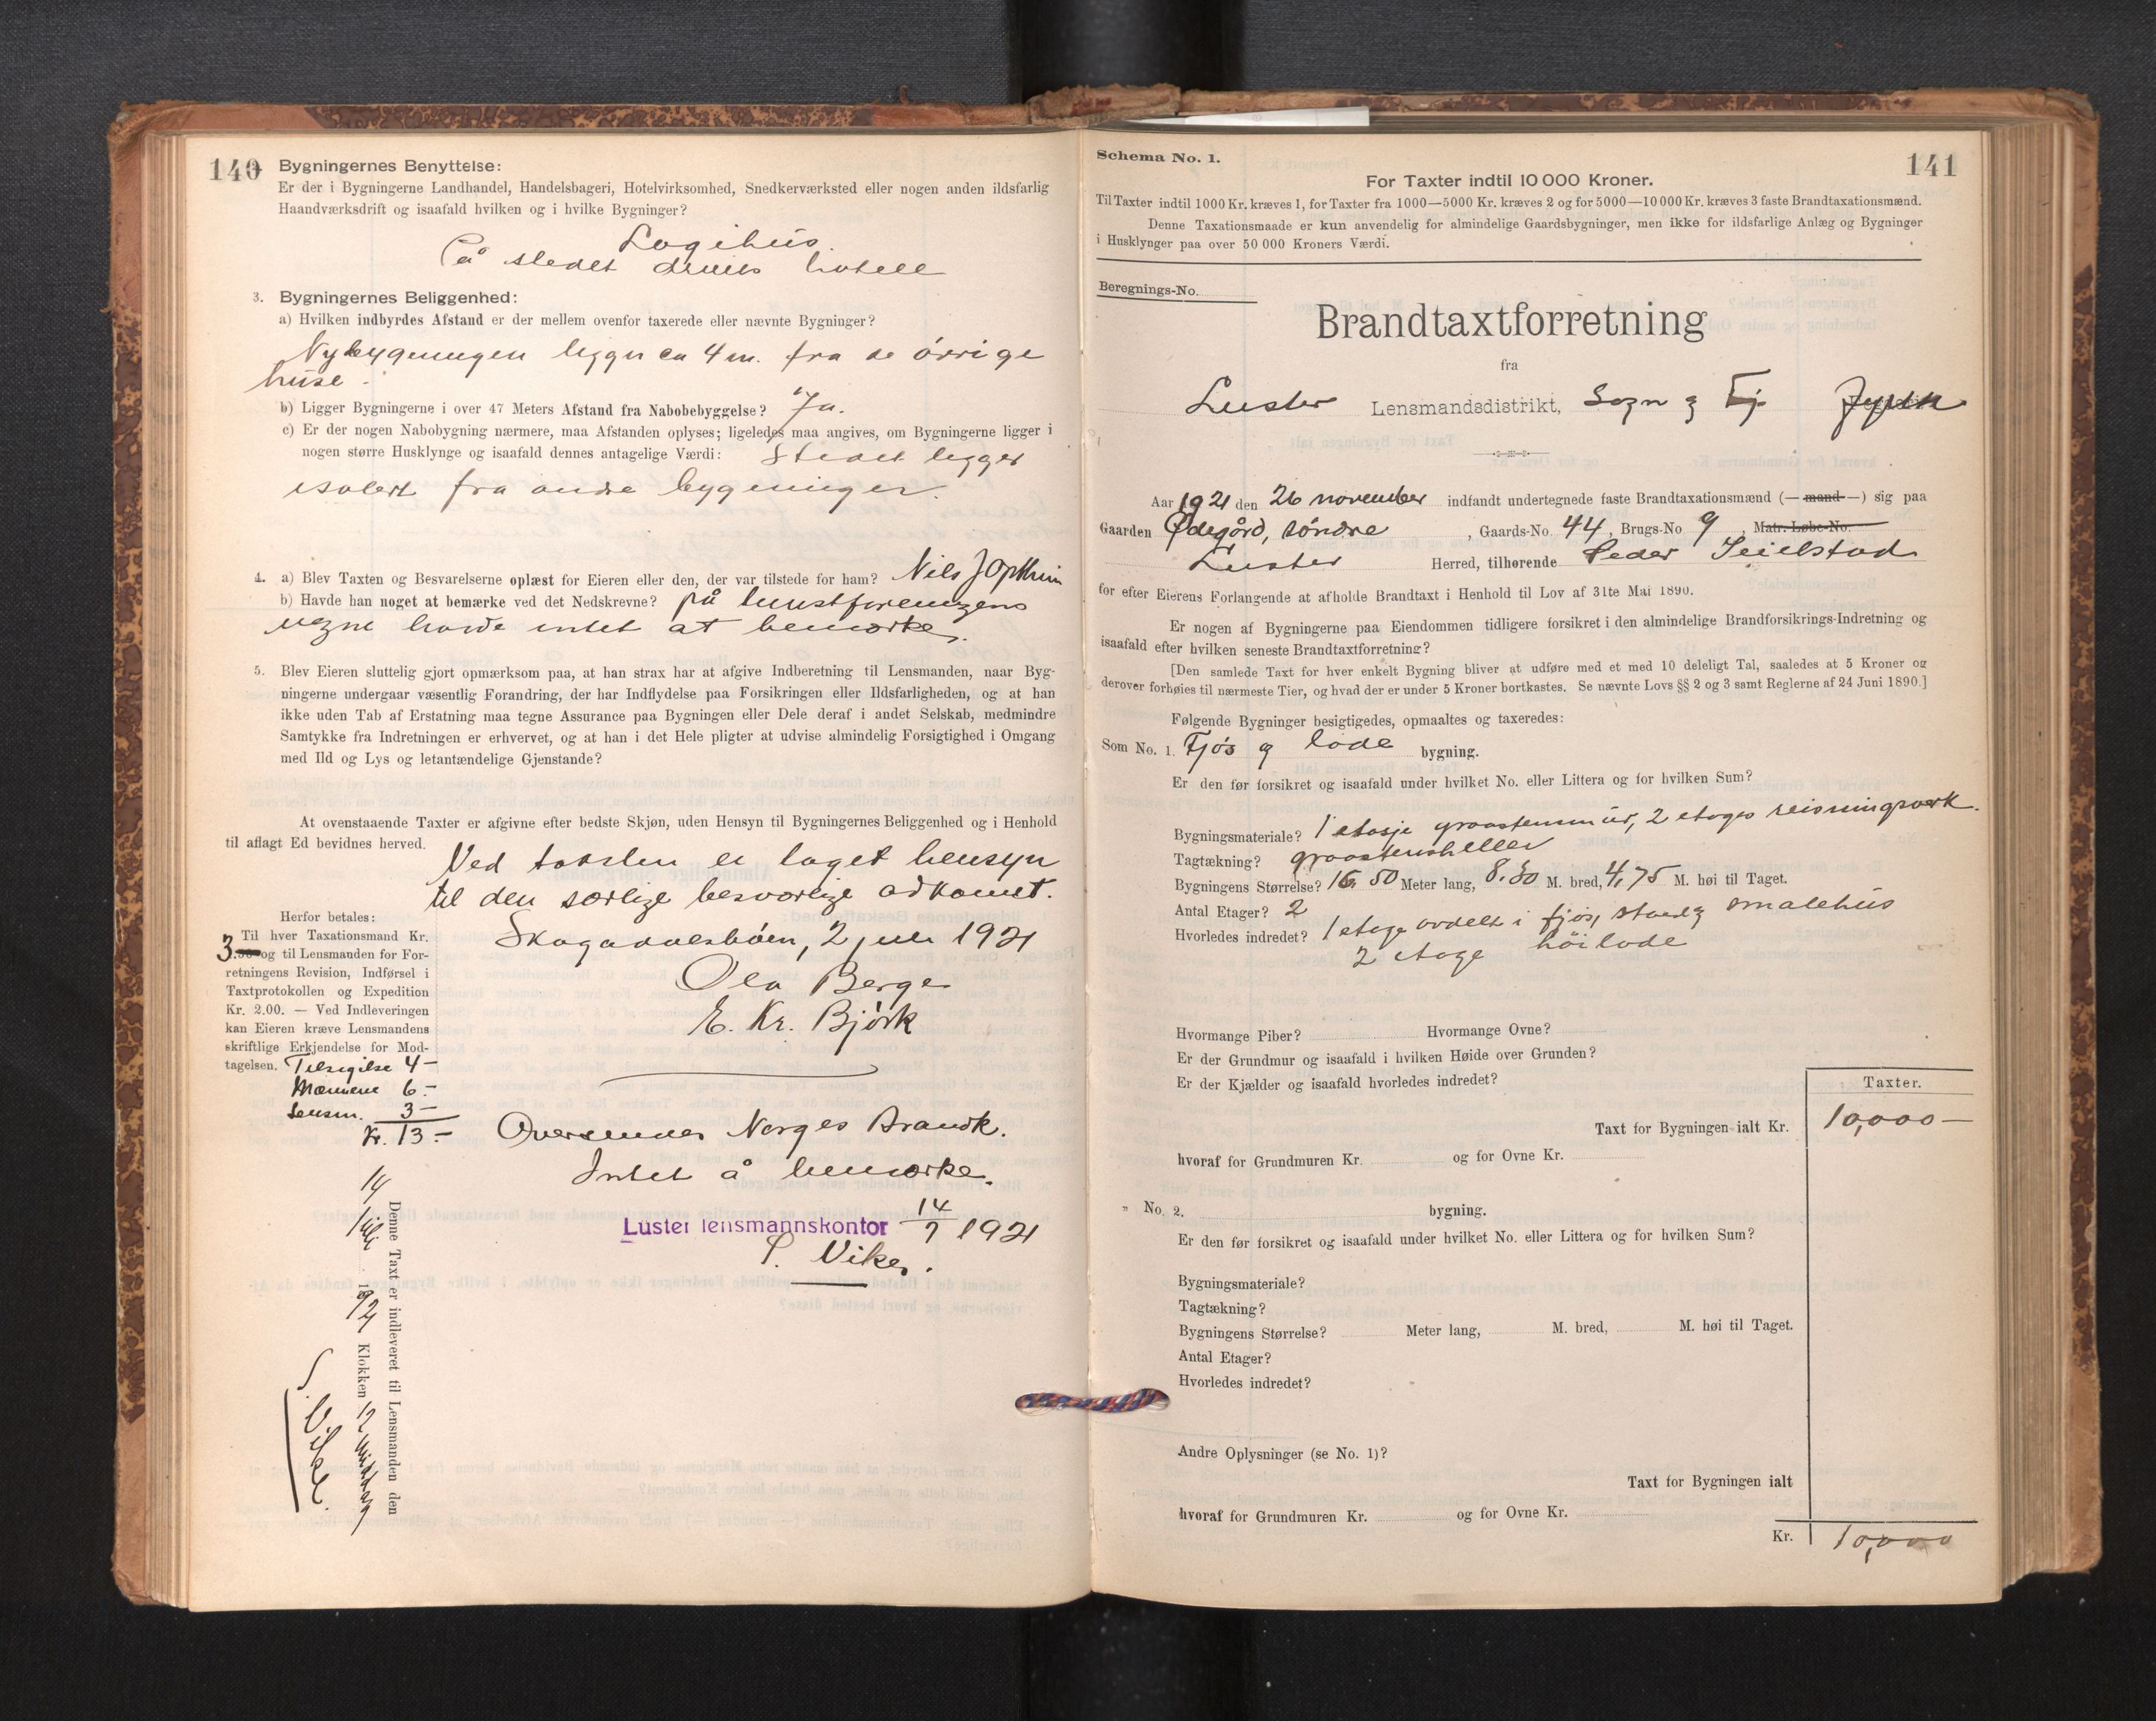 140
Bygningernes Benyttelse:
Er der i Bygningerne Landhandel, Handelsbageri, Hotelvirksomhed, Snedkerværksted eller nogen anden ildsfarlig
Haandværksdrift og isaafald hvilken og i hvilke Bygninger?
Logihus.
På stedet drives hotell
3. Bygningernes Beliggenhed:
a) Hvilken indbyrdes Afstand er der mellem ovenfor taxerede eller nævnte Bygninger?
Nybygningen ligger ca 4 m. fra de övrige
huse.
b) Ligger Bygningerne i over 47 Meters Afstand fra Nabobebyggelse? Ja.
c) Er der nogen Nabobygning nærmere, maa Afstanden oplyses; ligeledes maa angives, om Bygningerne ligger i
nogen større Husklynge og isaafald dennes antagelige Værdi: Stedet ligger
isolert fra andre bygninger.
4. a) Blev Taxten og Besvarelserne oplæst for Eieren eller den, der var tilstede for ham? Nils J Opthun
b) Havde han noget at bemærke ved det Nedskrevne? på turistforeningens
vegne havde intet at bemærke.
5. Blev Eieren sluttelig gjort opmærksom paa, at han strax har at afgive Indberetning til Lensmanden, naar Byg-
ningerne undergaar væsentlig Forandring, der har Indflydelse paa Forsikringen eller Ildsfarligheden, og at han
ikke uden Tab af Erstatning maa tegne Assurance paa Bygningen eller Dele deraf i andet Selskab, medmindre
Samtykke fra Indretningen er erhvervet, og at han i det Hele pligter at udvise almindelig Forsigtighed i Omgang
med Ild og Lys og letantændelige Gjenstande?
At ovenstaaende Taxter er afgivne efter bedste Skjøn, uden Hensyn til Bygningernes Beliggenhed og i Henhold
til aflagt Ed bevidnes herved.
Ved taksten er taget hensyn
til den særlige besværlige adkomst.
Skogadalsböen, 2 juli 1921
Ola Berge
E. Kr. Bjørk
Herfor betales:
Til hver Taxationsmand Kr.
3. og til Lensmanden for For-
retningens Revision, Indførsel i
Taxtprotokollen og Expedition
Kr. 2.00. — Ved Indleveringen
kan Eieren kræve Lensmandens
skriftlige Erkjendelse for Mod-
tagelsen. Tilsigilse 4 —
Mænnene 6 —
Lensm. 3 —
Kr. 13 —
Oversendes Norges Brandk.
Intet å bemærke.
Luster lensmannskontor 14/7 1921
S. Vike.
Denne Taxt er indleveret til Lensmanden den
14 juli 1921 Klokken 12 middag
S. Vike.
Schema No. 1.
141
For Taxter indtil 10 000 Kroner.
Til Taxter indtil 1000 Kr. kræves 1, for Taxter fra 1000—5000 Kr. kræves 2 og for 5000—10 000 Kr. kræves 3 faste Brandtaxationsmænd.
Denne Taxationsmaade er kun anvendelig for almindelige Gaardsbygninger, men ikke for ildsfarlige Anlæg og Bygninger
i Husklynger paa over 50 000 Kroners Værdi.
Beregnings-No.
Brandtaxtforretning
fra
Luster Lensmandsdistrikt, Sogn og Fj.
Aar 1921 den 26 november indfandt undertegnede faste Brandtaxationsmænd (— mand —) sig paa
Gaarden Ødegård, söndre, Gaards-No. 44, Brugs-No 9, Matr. Løbe-No.
Luster Herred, tilhørende Peder Seielstad
for efter Eierens Forlangende at afholde Brandtaxt i Henhold til Lov af 31te Mai 1890.
Er nogen af Bygningerne paa Eiendommen tidligere forsikret i den almindelige Brandforsikrings-Indretning og
isaafald efter hvilken seneste Brandtaxtforretning?
[Den samlede Taxt for hver enkelt Bygning bliver at udføre med et med 10 deleligt Tal, saaledes at 5 Kroner og
derover forhøies til nærmeste Tier, og hvad der er under 5 Kroner bortkastes. Se nævnte Lovs §§ 2 og 3 samt Reglerne af 24 Juni 1890.]
Følgende Bygninger besigtigedes, opmaaltes og taxeredes:
Som No. 1. Fjös og lade bygning.
Er den før forsikret og isaafald under hvilket No. eller Littera og for hvilken Sum?
Bygningsmateriale? 1 etasje graastensmur, 2 etages reisningsverk.
Tagtækning? graastensheller
Bygningens Størrelse? 16.50 Meter lang, 8.30 M. bred, 4,75 M. høi til Taget.
Antal Etager? 2
Hvorledes indredet? 1 etage avdelt i fjös, stald og smalehus
2 etage höilade
Hvormange Piber? Hvormange Ovne?
Er der Grundmur og isaafald i hvilken Høide over Grunden?
Er der Kjælder og isaafald hvorledes indredet?
Taxter.
Taxt for Bygningen ialt Kr. 10,000 —
hvoraf for Grundmuren Kr. og for Ovne Kr.
„ No. 2. bygning.
Er den før forsikret og isaafald under hvilket No. eller Littera og for hvilken Sum?
Bygningsmateriale?
Tagtækning?
Bygningens Størrelse? Meter lang, M. bred, M. høi til Taget.
Antal Etager?
Hvorledes indredet?
Andre Oplysninger (se No. 1)?
Taxt for Bygningen ialt
hvoraf for Grundmuren Kr. og for Ovne Kr.
Kr. 10,000